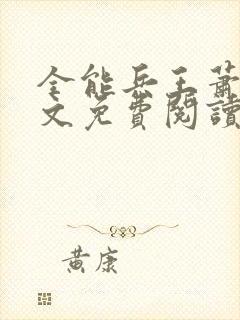 全能兵王蕭
文免費閱讀
黃康